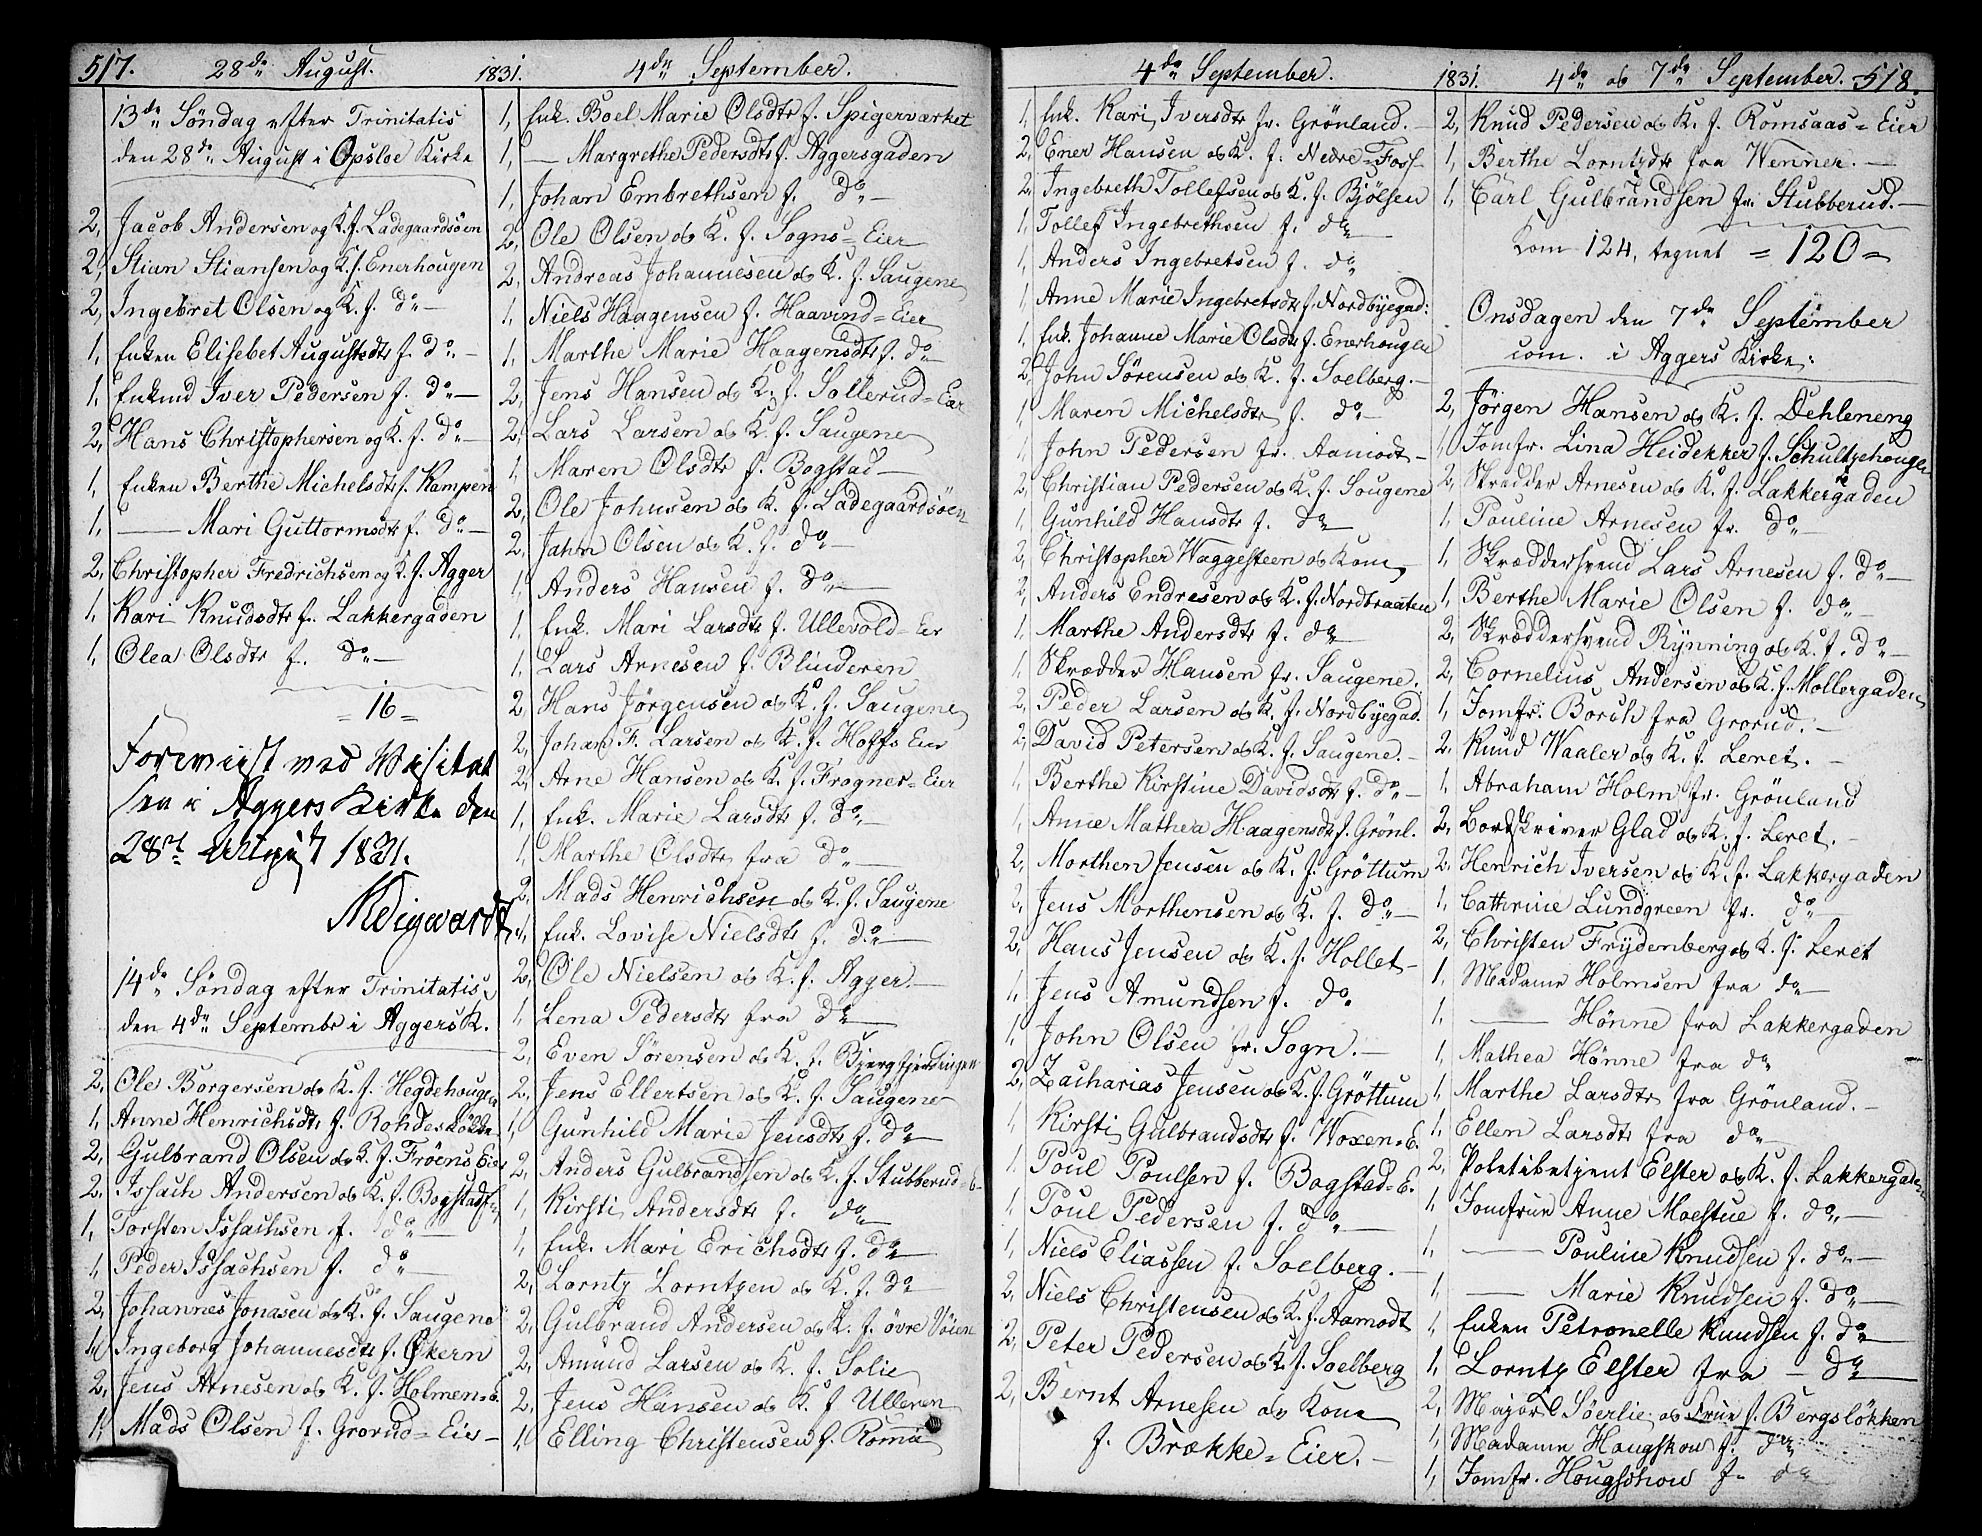 517. 28de August. 1831. 4de September.
13de Søndag efter Trinitatis
den 28de August i Opsloe Kirke
2, Jacob Andersen og K. f. Ladegaardsöen
2, Stian Stiansen og K. f. Enerhougen
2, Ingebret Olsen og K. f. do —
1, Enken Elisebet Augustsdtr f. do —
1, Enkmd Iver Pedersen f. do —
2, Hans Christophersen og K. f. do —
1, Enken Berthe Michelsdtr f. Kampen
1, — Mari Guttormsdtr f. do —
2, Christopher Fredrichsen og K. f. Agger
1, Kari Knudsdtr f. Lakkergaden
1, Olea Olsdtr f. do —
= 16 =
Foreviist ved Visitat
sen i Aggers Kirke den
28de August 1831.
14de Søndag efter Trinitatis,
den 4de Septembr i Aggers K.
2, Ole Borgersen og K. f. Hegdehougen
1, Anne Henrichsdtr f. Rohdeslökke
2, Gulbrand Olsen og K. f. Fröens Eier
2, Issach Andersen og K. f. Bogstads
1, Torsten Issachsen f. do —
1, Peder Issachsen f. do —
2, Johannes Jonasen og K. f. Saugene
1, Ingeborg Johannesdtr f. Økern
2, Jens Arnesen og K. f. Holmen=E.
1, Mads Olsen f. Grorud=Eier —
1, Enk. Boel Marie Olsdtr f. Spigerværket
1, — Margrethe Pedersdtr f. Aggersgaden
1, Johan Embrethsen f. do —
2, Ole Olsen og K. f. Sogns=Eier
2, Andreas Johannesen og K. f. Saugene
1, Niels Haagensen f. Haavind=Eier
1, Marthe Marie Haagensdtr f. do —
2, Jens Hansen og K. f. Sollerud=Eier
2, Lars Larsen og K. f. Saugene
1, Maren Olsdtr f. Bogstad —
2, Ole Johnsen og K. f. Ladegaardsöen
2, Jahn Olsen og K. f. do —
1, Anders Hansen f. do —
1, Enk. Mari Larsdtr f. Ullevold=Eier
1, Lars Arnesen f. Blinderen
2, Hans Jörgensen og K. f. Saugene
2, Johan F. Larsen og K. f. Hoffs Eier
2, Arne Hansen og K. f. Frogner=Eier
1, Enk. Marie Larsdtr f. do —
1, Marthe Olsdtr fra do —
2, Mads Henrichsen og K. f. Saugene
1, Enk. Lovise Nielsdtr f. do —
2, Ole Nielsen og K. f. Agger. —
1, Lena Pedersdtr fra do
2, Even Sörensen og K. f. Bjergsjerdingen
2, Jens Ellertsen og K. f. Saugene
1, Gunhild Marie Jensdtr f. do —
2, Anders Gulbrandsen og K. f. Stubberud=E.
1, Kirsti Andersdtr f. do
1, Enk. Mari Erichsdtr f. do
2, Lorntz Lorntzen og K. f. do
2, Gulbrand Andersen og K. f. övre Vöien
2, Amund Larsen og K. f. Solie
2, Jens Hansen og K. f. Ulleren
1, Elling Christensen f. Romie
4de September. 1831. 4de og 7de September. 518.
1, Enk. Kari Iversdtr fr. Grönland. —
2, Ener Hansen og K. f. Nedre=Foss —
2, Ingebreth Tollefsen og K. f. Bjölsen
1, Tollef Ingebrethsen f. do
1, Anders Ingebretsen f. do
1, Anne Marie Ingebretsdtr f. Nordbyegad:
1, Enk. Johanne Marie Olsdtr f. Enerhougen
2, John Sörensen og K. f. Soelberg. —
1, Maren Michelsdtr f. do —
1, John Pedersen fr. Aamodt —
2, Christian Pedersen og K. f. Sougene
1, Gunhild Hansdtr f. do
2, Christopher Waggesteen og Kone
2, Anders Endresen og K. f. Nordbraaten
1, Marthe Andersdtr f. do
1, Skrædder Hansen fr. Saugene.
2, Peder Larsen og K. f. Nordbyegad.
2, David Petersen og K. f. Saugene. —
1, Berthe Kirstine Davidsdtr f. do —
1, Anne Mathea Haagensdtr f. Grönl.
2, Morthen Jensen og K. f. Gröttum
2, Jens Morthensen og K. f. do —
2, Hans Jensen og K. f. Hollet —
1, Jens Amundsen f. do
1, John Olsen fr. Sogn. —
2, Zacharias Jensen og K. f. Gröttum
1, Kirsti Gulbrandsdtr f. Woxen=E.
1, Poul Poulsen f. Bogstad=E.
1, Poul Pedersen f. do —
1, Niels Eliassen f. Soelberg. —
2, Niels Christensen og K. f. Aamodt
2, Peter Pedersen og K. f. Soelberg
2, Bernt Arnesen og Kone
f. Brække=Eier. —
2, Knud Pedersen og K. f. Romsaas=Eier
1, Berthe Lorntzdtr fra Wenner. —
1, Carl Gulbrandsen fr. Stubberud. —
Kom 124, tegnet = 120 =
Onsdagen den 7de September
com. i Aggers Kirke:
2, Jörgen Hansen og K. f. Dehleneng
1, Jomfr. Lina Heidekker f. Schultzehougen
2, Skrædder Arnesen og K. f. Lakkergaden
1, Pauline Arnesen fr. do —
1, Skræddersvend Lars Arnesen f. do —
1, Berthe Marie Olsen f. do —
2, Skræddersvend Rynning og K. f. do —
2, Cornelius Andersen og K. f. Mollergaden
1, Jomfr. Borch fra Grorud. —
2, Knud Waaler og K. f. Leret. —
1, Abraham Holm fr. Grönland
2, Bordskriver Glad og K. f. Leret. —
2, Henrich Iversen og K. f. Lakkergaden
1, Cathrine Lundgreen fr. do —
2, Christen Frydenberg og K. f. Leret
1, Madame Holmsen fra do
1, — Hönne fra Lakkergaden
1, Mathea Hönne fra do
1, Marthe Larsdtr fra Grönland. —
1, Ellen Larsdtr fra do
2, Politibetjent Elster og K. f. Lakkergaden
1, Jomfrue Anne Moestue f. do —
1, — Pouline Knudsen f. do —
1, — Marie Knudsen f. do —
1, Enken Petronelle Knudsen f. do
1, Lorntz Elster fra — do
2, Major Söerlie og Frue f. Bergslökken
1, Madame Hougskow f. do
1, Jomfr. Hougschow f. do